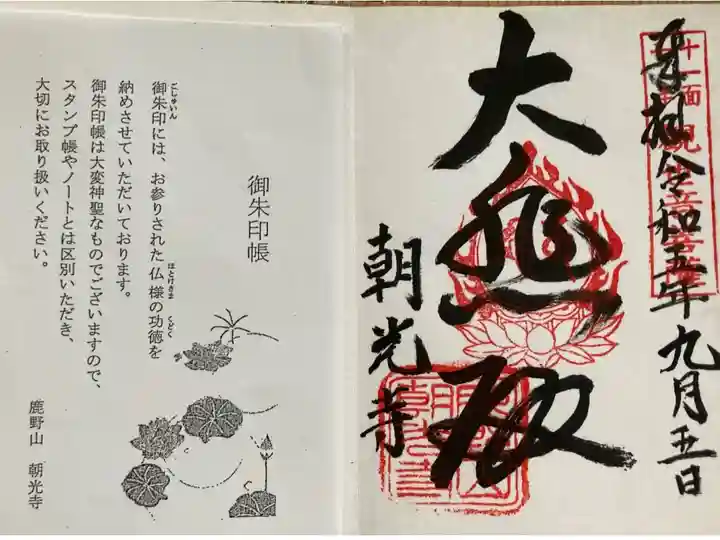 奉拝 令和五年九月五日
十一面観世音菩薩
大悲殿
朝光寺
御朱印帳
ごしゅいん
御朱印には、お参りされた仏様の功徳を
ほとけさま
くどく
納めさせていただいております。
御朱印帳は大変神聖なものでございますので、
スタンプ帳やノートとは区別いただき、
大切にお取り扱いください。
鹿野山 朝光寺